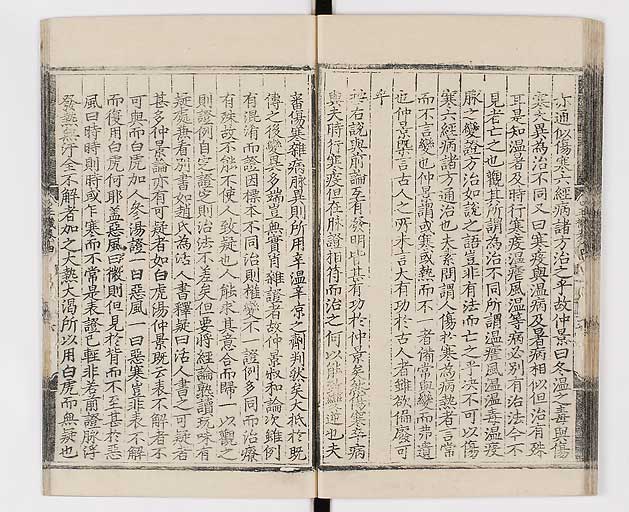 亦通似傷寒六經病諸方治之乎故仲景曰冬溫之毒與傷
寒大異為治不同又曰寒疫與溫病及暑病相似但治有殊
耳是知溫暑及時行寒疫溫瘧風溫等病必別有治法今不
見者亡之也觀其所謂為治不同所謂溫瘧風溫溫毒溫疫
脉之變證方治如說之語豈非有法而亡之乎决不可以傷
寒六經病諸方通治也夫素問謂人傷於寒為病熱者言常
而不言變也仲景謂或寒或熱而不一者備常與變而弗遺
也仲景蓋言古人之所未言大有功於古人者雖欲偏廢可
乎
右說與前論互有發明此其有功於仲景矣
與夫時行寒疫但在脉證相符而治之何以能也夫
審傷寒雜病脉異則所用辛溫辛凉之劑判然矣大抵於旣
傳之後變異多端豈無實肖雜證者故仲景叔和論次雖例
有混淆而證因標本不同治則權變不一證例多同而治療
有殊故不能不使人致疑也人能求其意合而歸一以觀之
則證例自定證定則治法不差矣但要將經論熟讀玩味有
疑處兼看別書如趙氏為活人書釋疑曰活人書之可疑者
甚多仲景論亦有可疑者如白虎湯仲景旣云表不解者不
可與而白虎加人參湯證一曰惡風一曰惡寒豈非表不解
而復用白虎何耶盖惡風曰微則但見於背而不至甚於惡
風曰時時則時或乍寒而不常是表證已輕非若前證脉浮
發熱無汗全不解者加之大熱大渴所以用白虎而無疑也